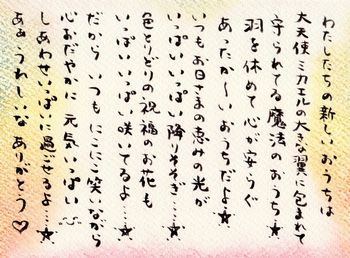 わたしたちの新しいおうちは
大天使ミカエルの大きな翼に包まれて
守られてる魔法のおうち★
羽を休めて心が安らぐ
あったか〜いおうちだよ!★
いつもお日さまの恵みの光が
いっぱいいっぱい降りそそぎ…★
色とりどりの祝福のお花も
いっぱいいっぱい咲いてるよ…★
だからいつもにこにこ笑いながら
心おだやかに元気いっぱい
しあわせいっぱいに過ごせるよ…★
あぁうれしいなありがとう♡